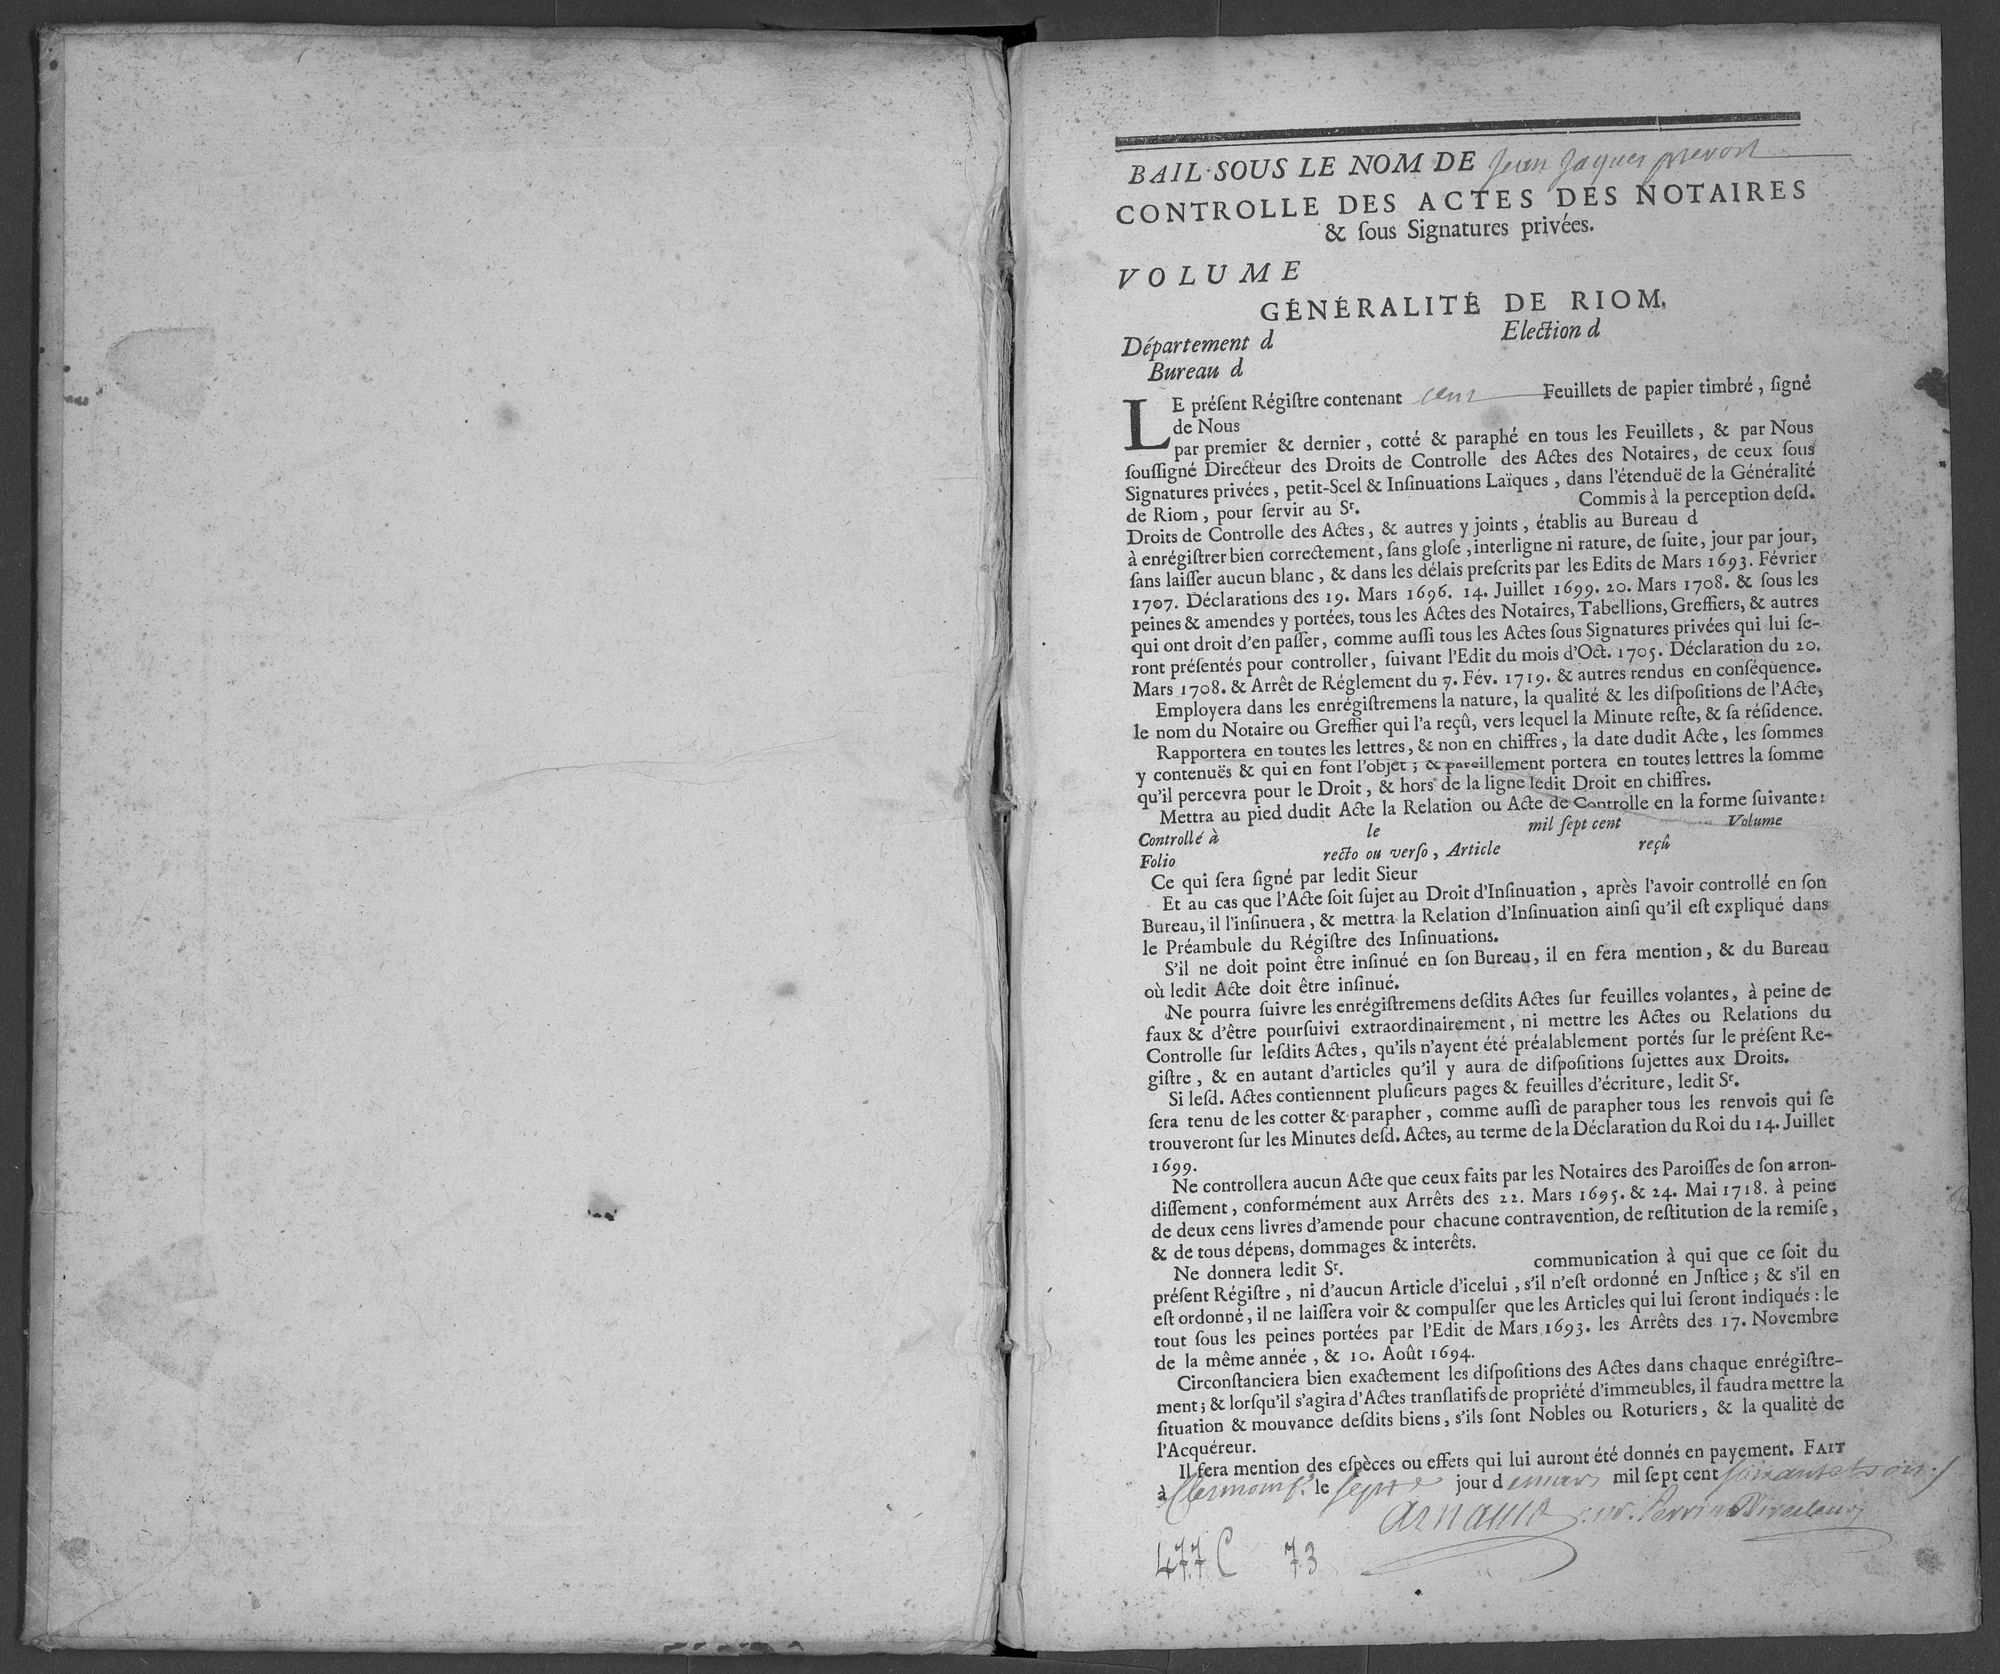 BAIL SOUS LE NOM DE Jean Jaques prevost
CONTROLLE DES ACTES DES NOTAIRES
& ſous Signatures privées.
VOLUME
GÉNÉRALITÉ DE RIOM.
Département d Election d
Bureau d
LE préſent Régiſtre contenant cent Feuillets de papier timbré, ſigné
de Nous
par premier & dernier, cotté & paraphé en tous les Feuillets, & par Nous
ſouſſigné Directeur des Droits de Controlle des Actes des Notaires, de ceux ſous
Signatures privées, petit-Scel & Inſinuations Laïques, dans l'étenduë de la Généralité
de Riom, pour ſervir au Sr. Commis à la perception deſd.
Droits de Controlle des Actes, & autres y joints, établis au Bureau d
à enrégiſtrer bien correctement, ſans gloſe, interligne ni rature, de ſuite, jour par jour,
ſans laiſſer aucun blanc, & dans les délais preſcrits par les Edits de Mars 1693. Février
1707. Déclarations des 19. Mars 1696. 14. Juillet 1699. 20. Mars 1708. & ſous les
peines & amendes y portées, tous les Actes des Notaires, Tabellions, Greffiers, & autres
qui ont droit d'en paſſer, comme auſſi tous les Actes ſous Signatures privées qui lui ſe-
ront préſentés pour controller, ſuivant l'Edit du mois d'Oct. 1705. Déclaration du 20.
Mars 1708. & Arrêt de Réglement du 7. Fév. 1719. & autres rendus en conſéquence.
Employera dans les enrégiſtremens la nature, la qualité & les diſpoſitions de l'Acte,
le nom du Notaire ou Greffier qui l'a reçû, vers lequel la Minute reſte, & ſa réſidence.
Rapportera en toutes les lettres, & non en chiffres, la date dudit Acte, les ſommes
y contenuës & qui en font l'objet; & pareillement portera en toutes lettres la ſomme
qu'il percevra pour le Droit, & hors de la ligne ledit Droit en chiffres.
Mettra au pied dudit Acte la Relation ou Acte de Controlle en la forme ſuivante:
Controllé à le mil ſept cent Volume
Folio recto ou verſo, Article reçû
Ce qui ſera ſigné par ledit Sieur
Et au cas que l'Acte ſoit ſujet au Droit d'Inſinuation, après l'avoir controllé en ſon
Bureau, il l'inſinuera, & mettra la Relation d'Inſinuation ainſi qu'il eſt expliqué dans
le Préambule du Régiſtre des Inſinuations.
S'il ne doit point être inſinué en ſon Bureau, il en fera mention, & du Bureau
où ledit Acte doit être inſinué.
Ne pourra ſuivre les enrégiſtremens deſdits Actes ſur feuilles volantes, à peine de
faux & d'être pourſuivi extraordinairement, ni mettre les Actes ou Relations du
Controlle ſur leſdits Actes, qu'ils n'ayent été préalablement portés ſur le préſent Re-
giſtre, & en autant d'articles qu'il y aura de diſpoſitions ſujettes aux Droits.
Si leſd. Actes contiennent pluſieurs pages & feuilles d'écriture, ledit Sr.
ſera tenu de les cotter & parapher, comme auſſi de parapher tous les renvois qui ſe
trouveront ſur les Minutes deſd. Actes, au terme de la Déclaration du Roi du 14. Juillet
1699.
Ne controllera aucun Acte que ceux faits par les Notaires des Paroiſſes de ſon arron-
diſſement, conformément aux Arrêts des 22. Mars 1695. & 24. Mai 1718. à peine
de deux cens livres d'amende pour chacune contravention, de reſtitution de la remiſe,
& de tous dépens, dommages & interêts.
Ne donnera ledit Sr. communication à qui que ce ſoit du
préſent Régiſtre, ni d'aucun Article d'icelui, s'il n'eſt ordonné en Jnſtice; & s'il en
eſt ordonné, il ne laiſſera voir & compulſer que les Articles qui lui ſeront indiqués: le
tout ſous les peines portées par l'Edit de Mars 1693. les Arrêts des 17. Novembre
de la même année, & 10. Août 1694.
Circonſtanciera bien exactement les diſpoſitions des Actes dans chaque enrégiſtre-
ment; & lorſqu'il s'agira d'Actes tranſlatifs de propriété d'immeubles, il faudra mettre la
ſituation & mouvance deſdits biens, s'ils ſont Nobles ou Roturiers, & la qualité de
l'Acquéreur.
Il fera mention des eſpèces ou effets qui lui auront été donnés en payement. FAIT
à Clermont f. le sept jour de mars mil ſept cent soixante trois
Arnauld Perrin Directeur
477 C 73